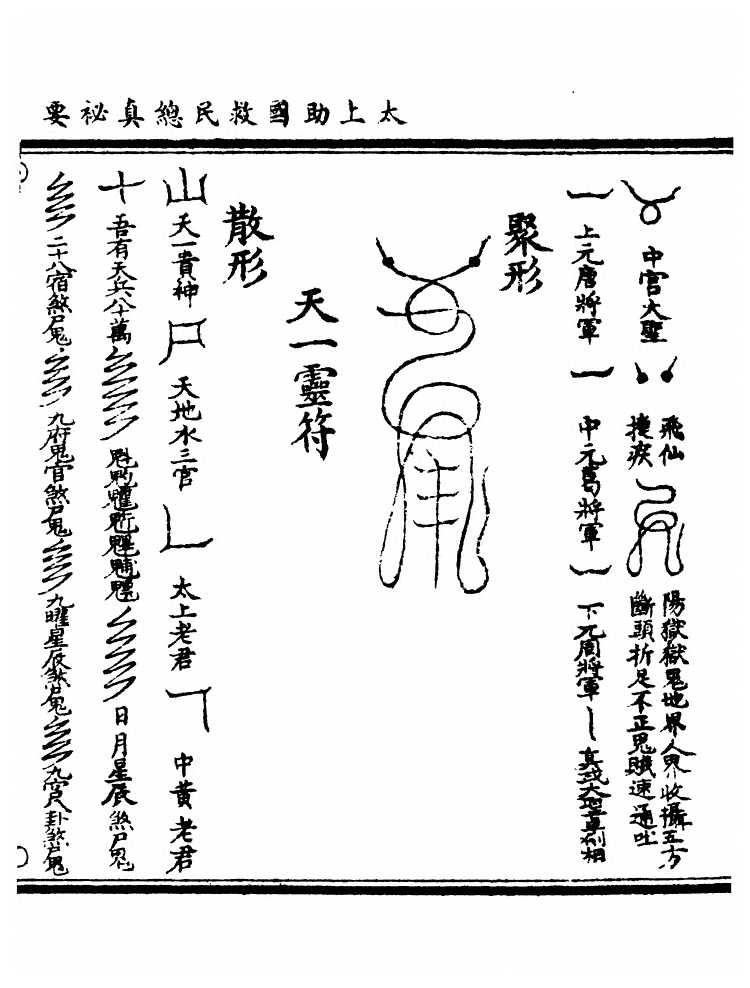 太上助國救民總真祕要
中宮大聖
飛仙
捷疾
陽獄獄鬼地界人界收攝五方
斷頭折足不正鬼賊速通吐
上元唐將軍
中元葛將軍
下元周將軍
真武大聖真劍相
聚形
天一靈符
散形
山
天一貴神
尸
天地水三官
太上老君
中黃老君
十
吾有天兵八十萬
日月星辰煞尸鬼
二十八宿煞尸鬼
九府鬼官煞尸鬼
九曜星辰煞尸鬼
九宮八卦煞尸鬼